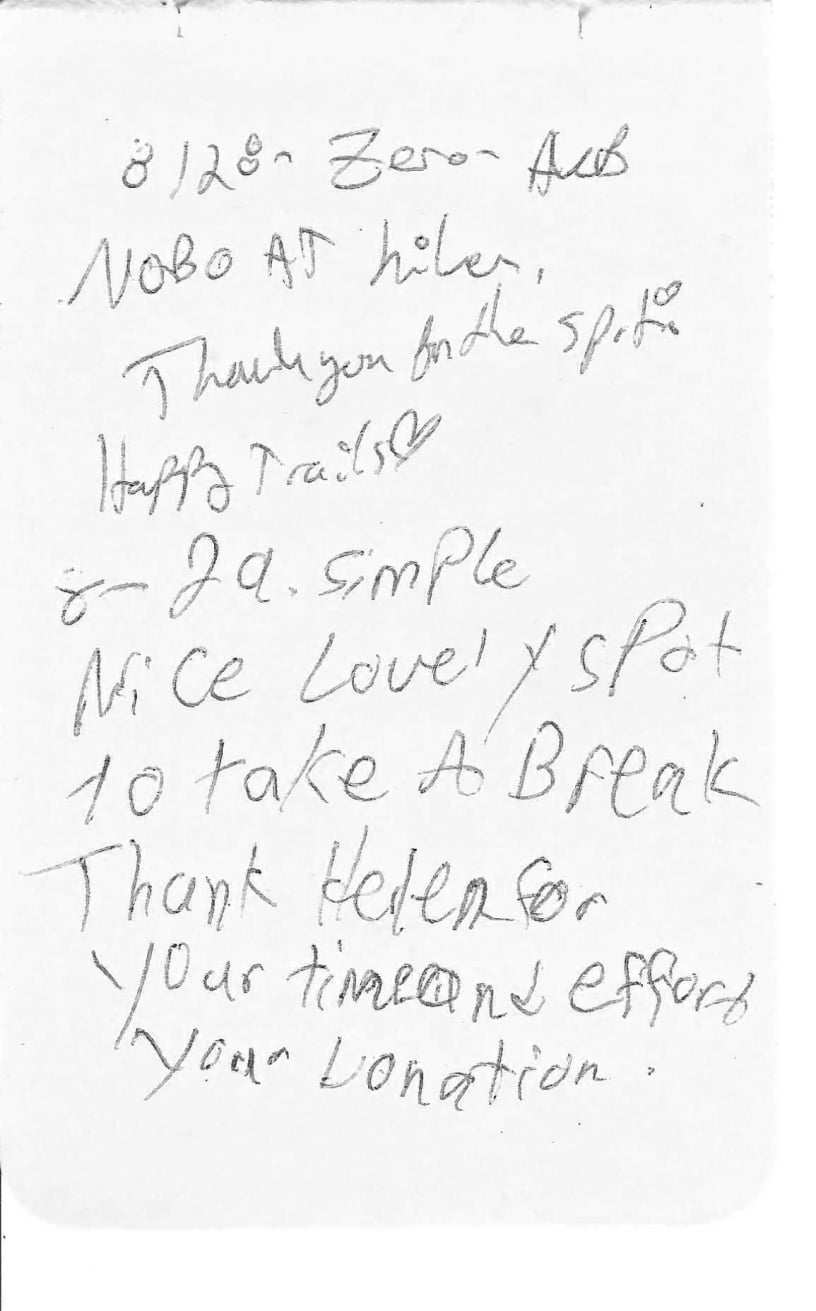 8/28 - Zero -
NOBO AT hiker,
Thank you for the spot!
Happy Trails♡
8-29. Simple
Nice Lovely spot
to take A Break
Thank Helen for
your time and effort
your Donation.